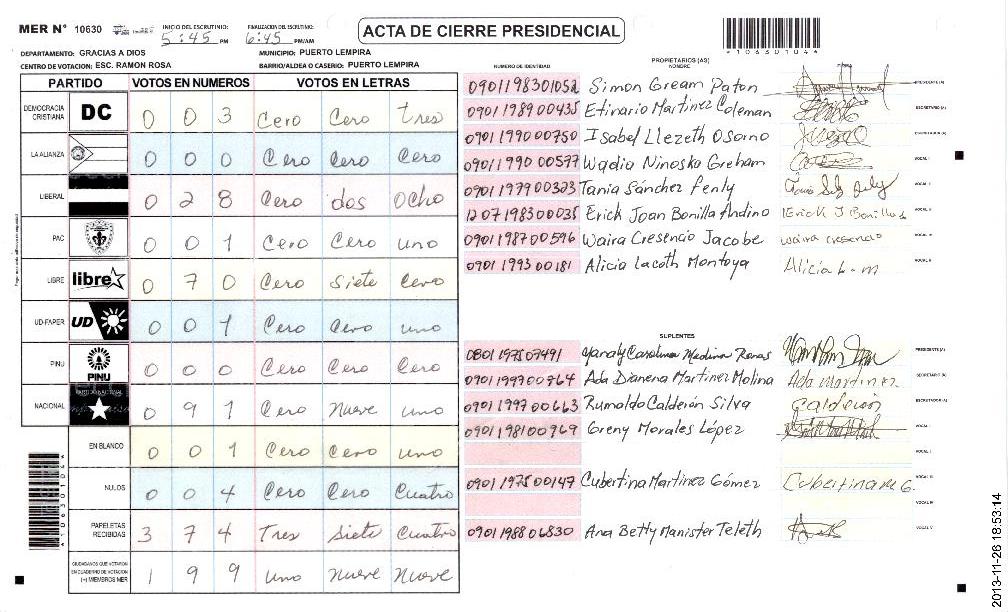 MER N° 10630
INICIO DEL ESCRUTINIO:
5:45 PM
FINALIZACION DEL ESCRUTINIO:
6:45 PM/AM
ACTA DE CIERRE PRESIDENCIAL
DEPARTAMENTO: GRACIAS A DIOS
MUNICIPIO: PUERTO LEMPIRA
CENTRO DE VOTACION: ESC. RAMON ROSA
BARRIO/ALDEA O CASERIO: PUERTO LEMPIRA
PARTIDO VOTOS EN NUMEROS VOTOS EN LETRAS
DEMOCRACIA CRISTIANA DC 0 0 3 Cero Cero tres
LA ALIANZA 0 0 0 Cero Cero Cero
LIBERAL 0 2 8 Cero dos Ocho
PAC 0 0 1 Cero Cero uno
LIBRE libre 0 7 0 Cero Siete Cero
UD-FAPER UD 0 0 1 Cero Cero uno
PINU PINU 0 0 0 Cero Cero Cero
NACIONAL 0 9 1 Cero Nueve uno
EN BLANCO 0 0 1 Cero Cero uno
NULOS 0 0 4 Cero Cero Cuatro
PAPELETAS RECIBIDAS 3 7 4 Tres Siete Cuatro
CIUDADANOS QUE VOTARON EN CUADERNO DE VOTACION (+) MIEMBROS MER 1 9 9 uno Nueve Nueve
PROPIETARIOS (AS)
NUMERO DE IDENTIDAD NOMBRE
0901198301052 Simon Gream Paton PRESIDENTE (A)
0901198900435 Etinario Martinez Coleman SECRETARIO (A)
0901199000750 Isabel Llezeth Osorno ESCRUTADOR (A)
0901199000577 Wadio Ninosko Greham VOCAL I
0901197900323 Tania Sánchez Fenly VOCAL II
1207198300035 Erick Joan Bonilla Andino Erick J Bonilla VOCAL III
0901198700596 Waira Cresencio Jacobe waira cresencio VOCAL IV
0901199300181 Alicia Lacoth Montoya Alicia L-m VOCAL V
SUPLENTES
0801197507491 Yanaly Carolina Medina PRESIDENTE (A)
0901199700764 Ada Dianena Martinez Molina Ada Martinez SECRETARIO (A)
0901199700663 Rumoldo Calderón Silva Calderón ESCRUTADOR (A)
0901198100969 Greny Morales López VOCAL I
VOCAL II
0901197500147 Cubertina Martinez Gómez Cubertina M G. VOCAL III
VOCAL IV
0901198806830 Ana Betty Manister Teleth VOCAL V
2013-11-26 18:53:14